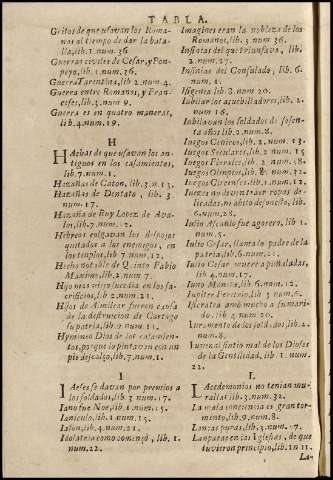 TABLA.
Gritos de que usavan los Roma-
nos al tiempo de dar la bata-
lla, lib. 1. num. 36
Guerras civiles de Cesar, y Pom-
peyo, lib. 1. num. 36.
Guerra Tarentina, lib 2. num 4.
Guerra entre Romanos, y Fran-
ceses, lib. 3. num 9.
Guerra es en quatro maneras,
lib. 4. num. 19.
H
HAchas de que usavan los an-
tiguos en los casamientos,
lib. 7. num. 1.
Hazañas de Caton, lib. 3. n. 13.
Hazañas de Dentato, lib. 3
num. 17.
Hazaña de Ruy Lopez de Ava-
los, lib. 7. num. 12.
Hebreos colgavan los despojos
quitados a los enemigos, en
los templos, lib 7. num 12.
Hecho notable de Quinto Fabio
Maximo, lib. 2 num 7.
Hijo mas viejo sucedia en los sa-
crificios, lib. 2. num. 21.
Hijos de Amilcar fueron causa
de la destruicion de Cartago
su patria, lib. 2 num 11.
Hymineo Dios de los casamien-
tos, porque lo pintavan con un
pie descalço, lib. 7. num. 1.
I
IAeses se davan por premios a
los soldados, lib. 3 num. 17.
Iano fue Noe, lib 1. num 15.
Ianiculo, lib. 1. num 15.
Iason, lib. 4. num. 21.
Idolatria como començò, lib. 1.
num. 22.
Imagines eran la nobleza de los
Romanos, lib. 3 num 36.
Insinias del que triunfava, lib.
2. num. 27.
Insinias del Consulado, lib. 6.
num. 1.
Isigenia lib. 8. num. 20.
Iubilar los acuchilladores, lib. 2.
num. 16
Iubilavan los soldados de sesen-
ta años lib. 2. num. 8.
Iuegos Cenicos, lib. 2. num. 13.
Iuegos Seculares, lib. 2 num 15
Iuegos Florales, lib. 2. num. 18.
Iuegos Olimpios, lib. 8 num. 32
Iuegos Circenses, lib. 1. num 12.
Iuezes no devan traer ropas de-
licadas, ni abito desonesto, lib.
6. num. 28.
Iulio Ascanio fue agorero, lib. 1.
num. 5.
Iulio Cesar, llamado padre de la
patria, lib. 6. num. 21.
Iulio Cesar muere a puñaladas,
lib 4. num. 17.
Iuno Moneta, lib. 6. num. 12.
Iupiter Feretrio, lib 3 num 6.
Iscrata amò mucho a su mari-
do, lib. 4. num 21.
Iuramento de los soldados, lib. 2.
num. 8.
Iuramento notable de los Dioses
de la Gentilidad, lib 1. num.
22.
L
LAcedemonios no tenian mu-
ralla lib 3. num. 32.
La mala conciencia es gran tor-
mento, lib. 9. num. 8.
Lanças puras, lib. 3. num. 17.
Lamparas en las Iglesias, de que
tuvieron principio, lib. 1 n 11.
La-